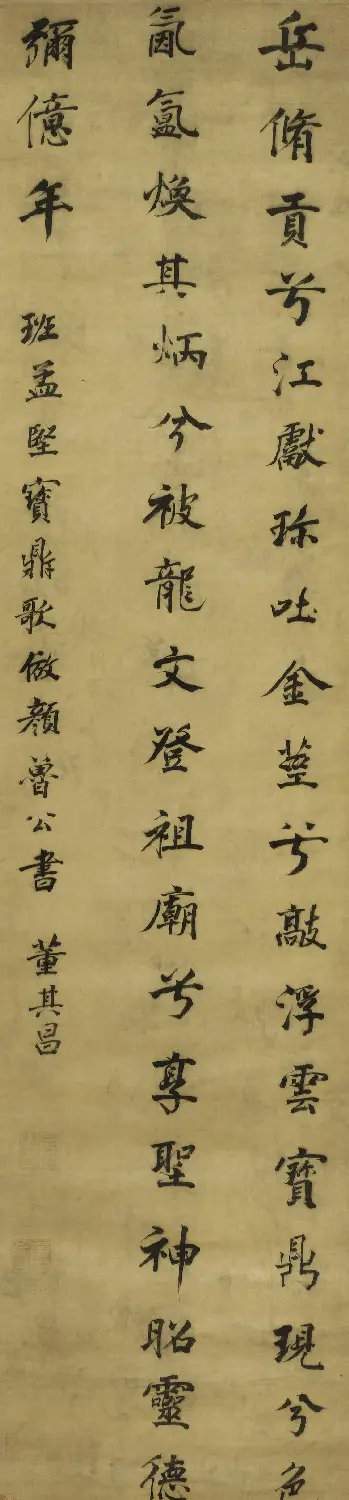 岳脩貢兮江獻珍吐金莖兮敲浮雲寶鼎現兮色
氤氳煥其炳兮被龍文登祖廟兮享聖神昭靈德
彌億年
班孟堅寶鼎歌倣顏魯公書 董其昌